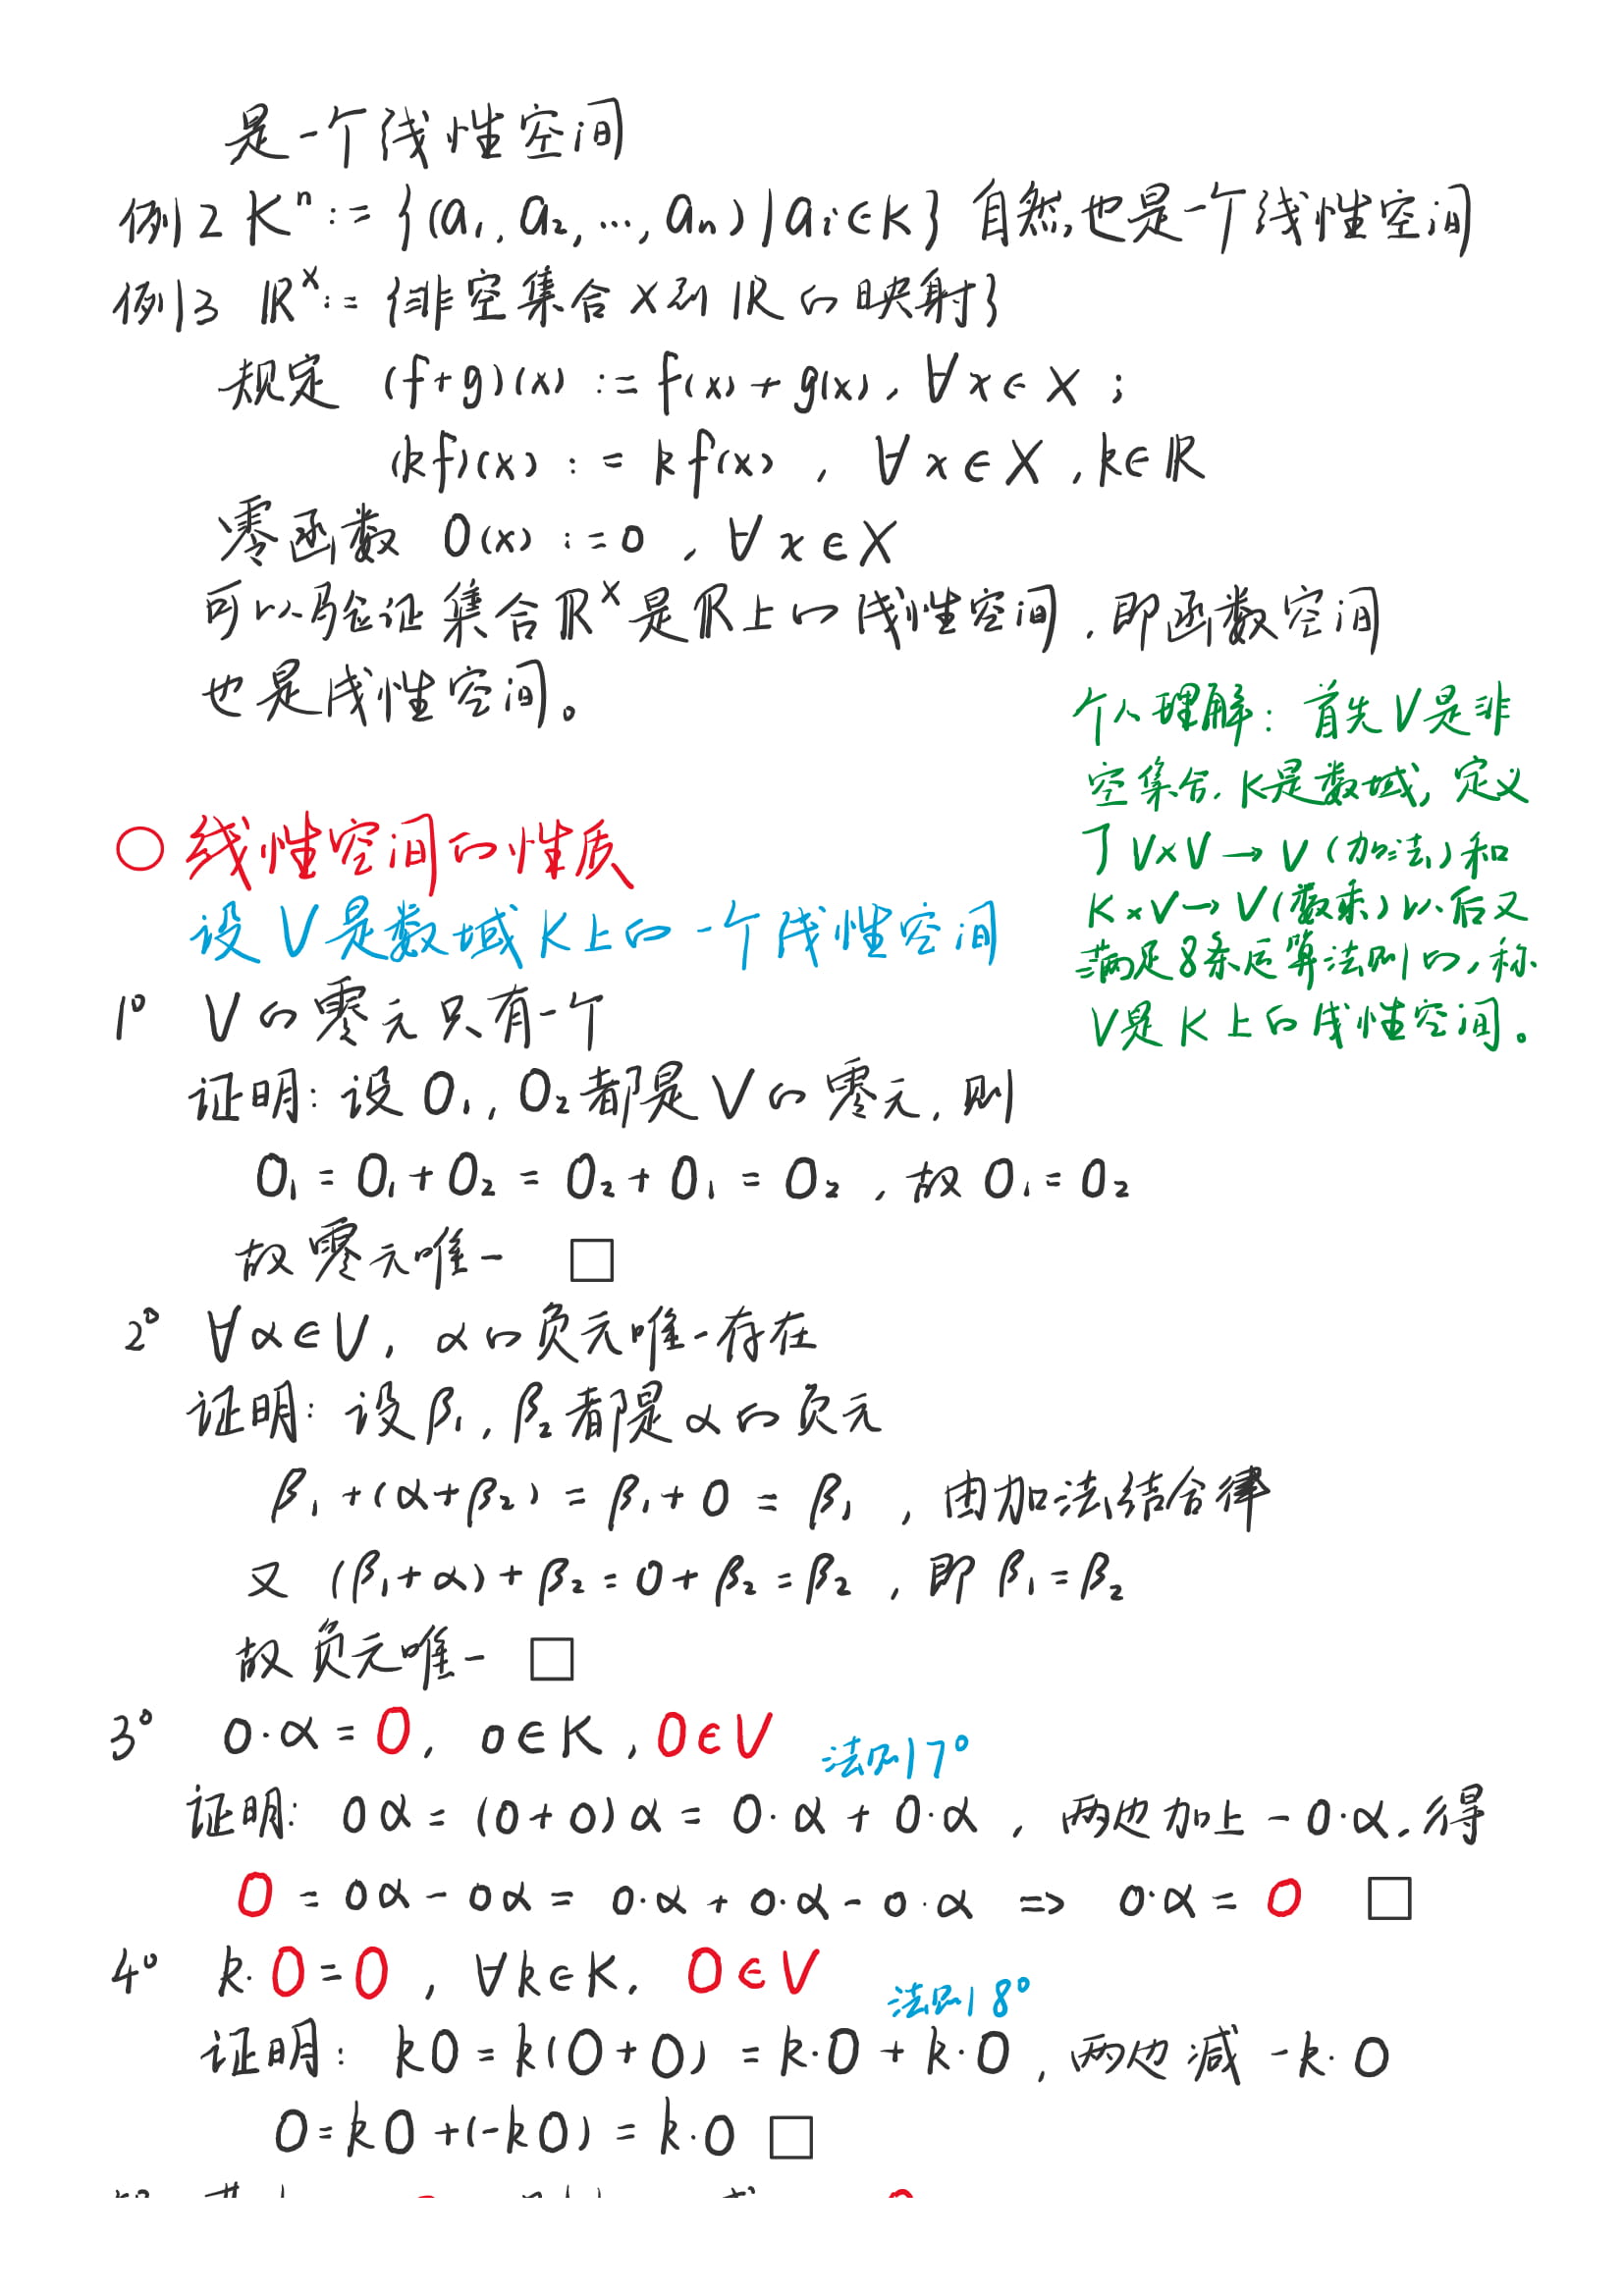 是一个线性空间
例2 Kⁿ := {(a₁, a₂, ..., aₙ) | aᵢ∈K} 自然,也是一个线性空间
例3 ℝˣ := {非空集合X到ℝ的映射}
规定 (f+g)(x) := f(x) + g(x), ∀x∈X ;
(kf)(x) := kf(x) , ∀x∈X , k∈ℝ
零函数 0(x) := 0 , ∀x∈X
可以验证集合ℝˣ是ℝ上的线性空间,即函数空间
也是线性空间。
个人理解: 首先V是非
空集合, K是数域, 定义
了 V×V→V(加法)和
K×V→V(数乘)以后又
满足8条运算法则的,称
V是K上的线性空间。
○ 线性空间的性质
设V是数域K上的一个线性空间
1° V的零元只有一个
证明: 设 0₁, 0₂都是V的零元, 则
0₁ = 0₁+0₂ = 0₂+0₁ = 0₂ , 故 0₁=0₂
故零元唯一 □
2° ∀α∈V, α的负元唯一存在
证明: 设β₁, β₂都是α的负元
β₁+(α+β₂) = β₁+0 = β₁ , 由加法结合律
又 (β₁+α)+β₂=0+β₂=β₂ , 即 β₁=β₂
故负元唯一 □
3° 0·α = 0, 0∈K, 0∈V
法则7°
证明: 0α = (0+0)α = 0·α + 0·α , 两边加上 -0·α, 得
0 = 0α - 0α = 0·α + 0·α - 0·α ⇒ 0·α = 0 □
4° k·0=0 , ∀k∈K, 0∈V
法则8°
证明: k0 = k(0+0) = k·0 + k·0 , 两边减 -k·0
0=k0+(-k0) = k·0 □